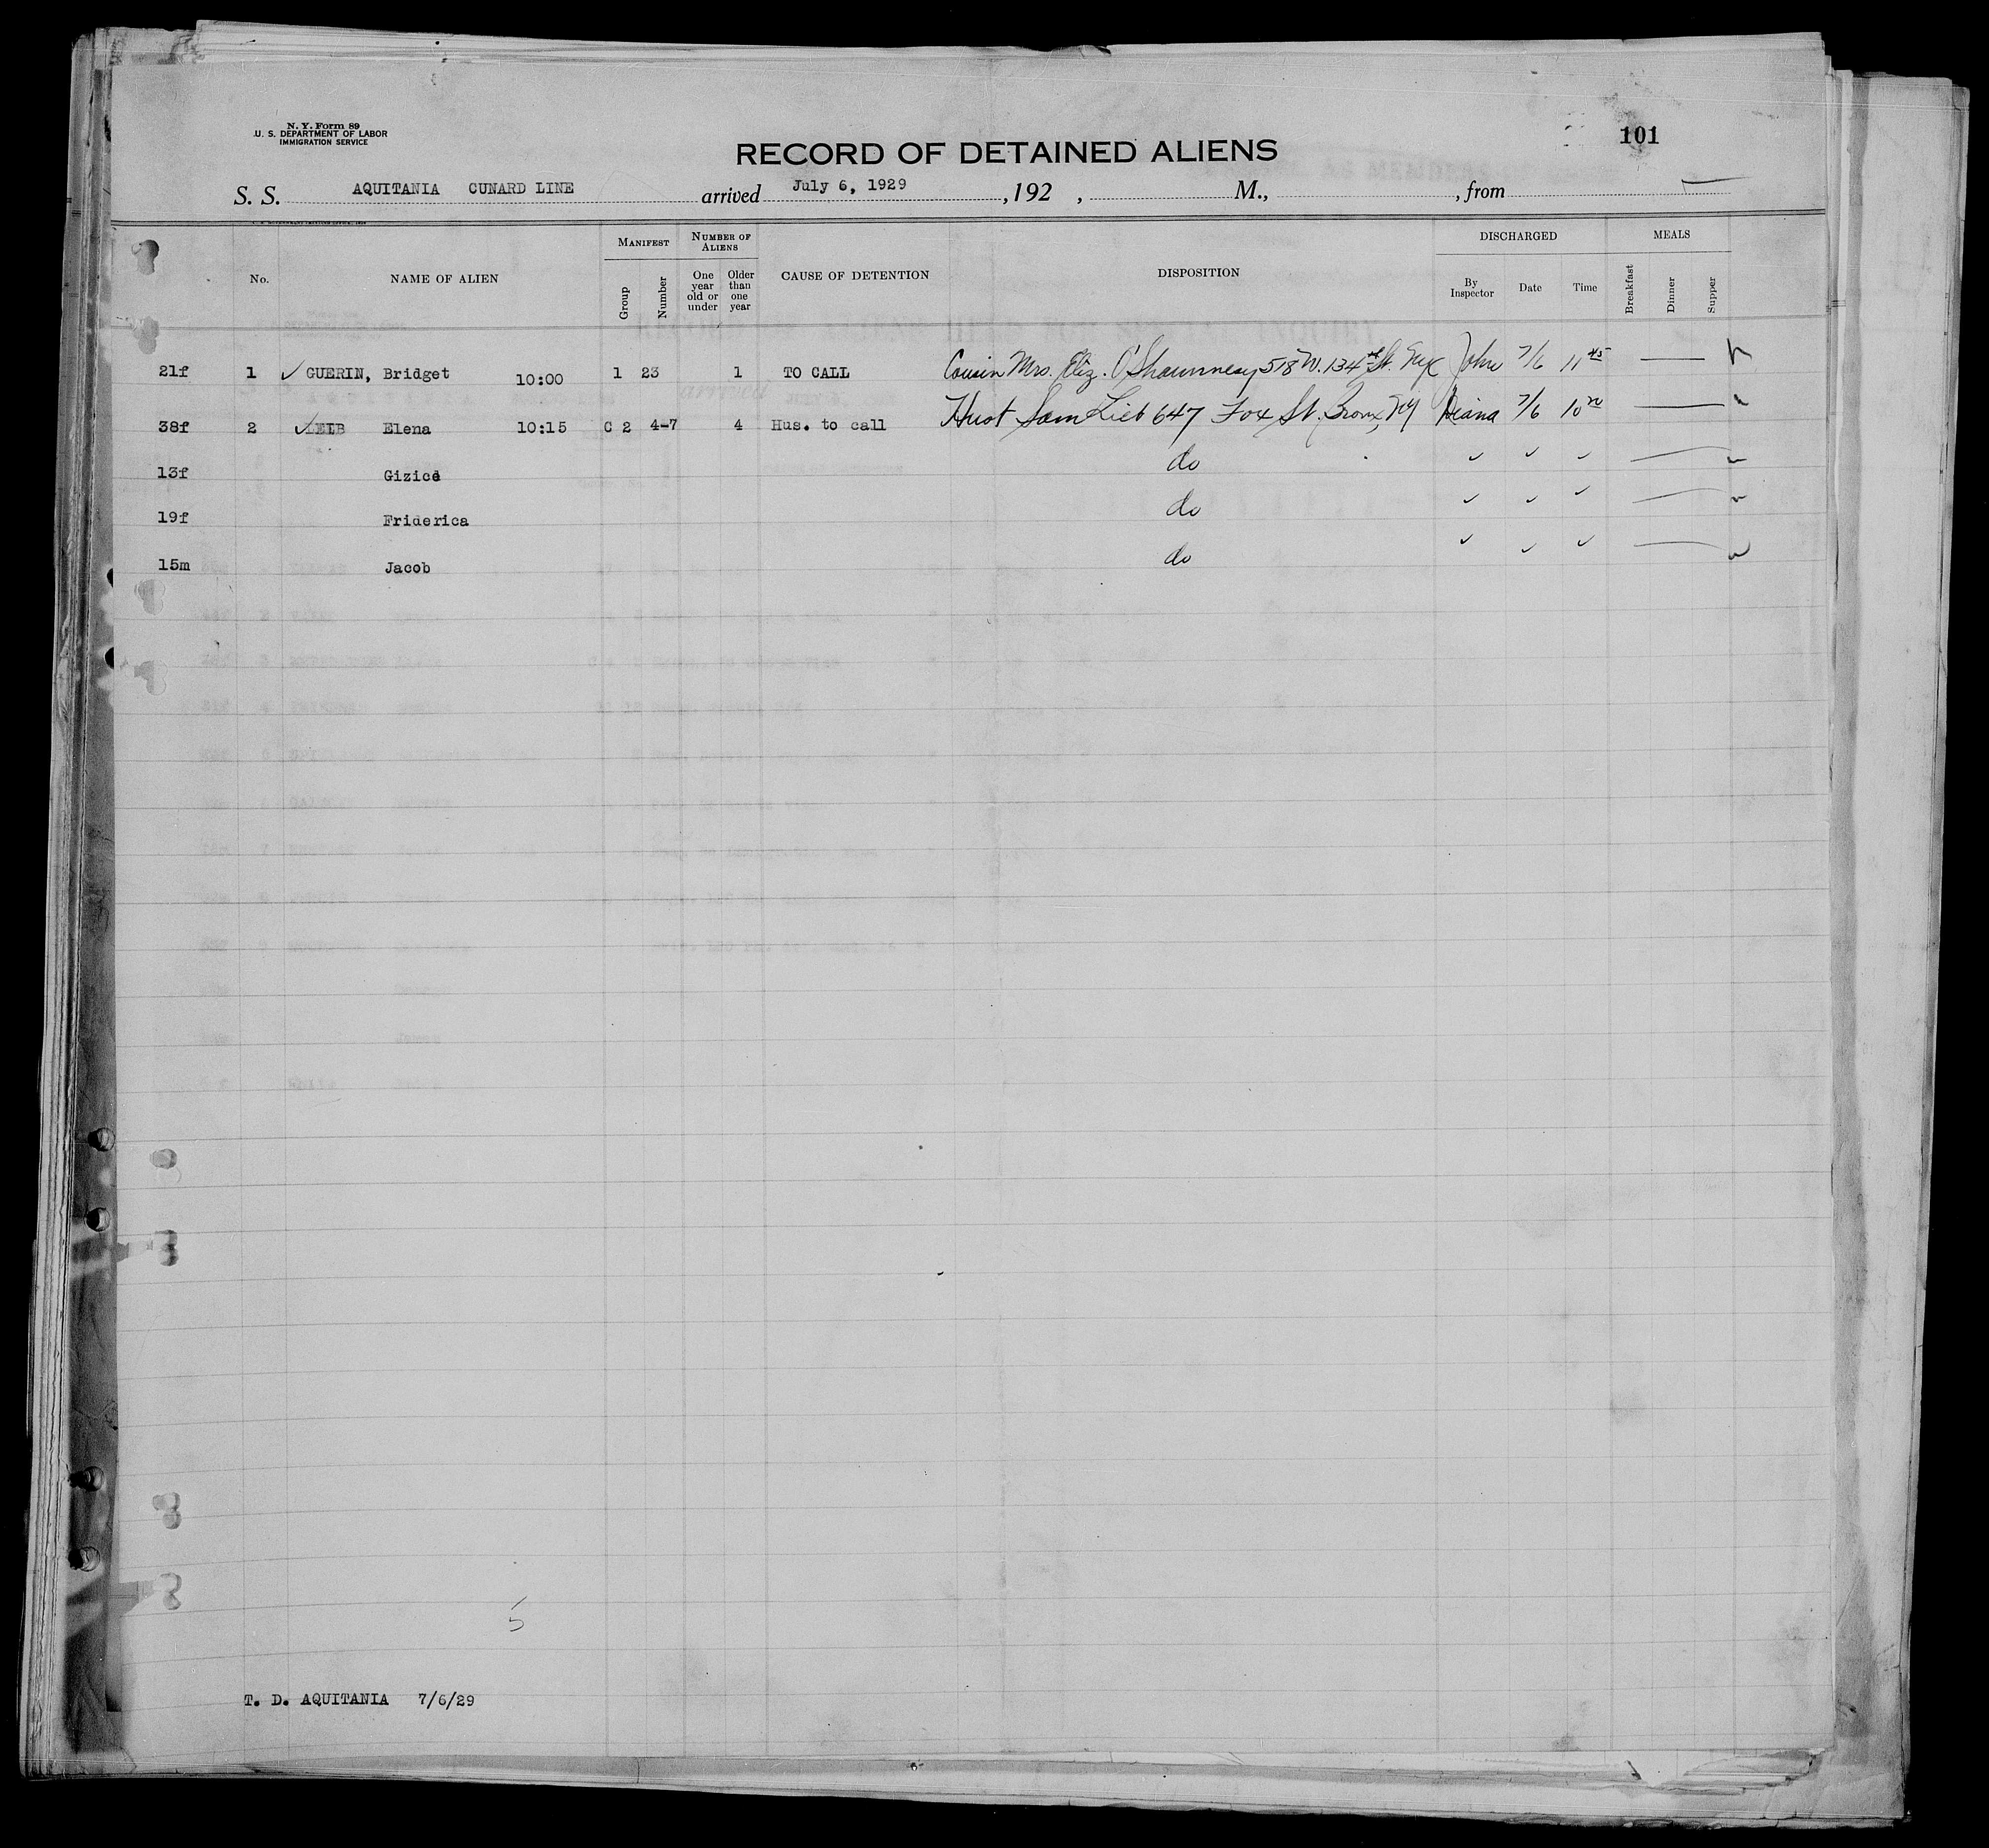 N. Y. Form 89
U. S. DEPARTMENT OF LABOR
IMMIGRATION SERVICE
101
RECORD OF DETAINED ALIENS
S. S. AQUITANIA CUNARD LINE arrived July 6, 1929 , 192 , M., , from
No. NAME OF ALIEN MANIFEST Group Number NUMBER OF ALIENS One year old or under Older than one year CAUSE OF DETENTION DISPOSITION DISCHARGED By Inspector Date Time MEALS Breakfast Dinner Supper
21f 1 ✓ GUERIN, Bridget 10:00 1 23 1 TO CALL Cousin Mrs. Eliz. O'Shaunnesy 518 W. 134 St. 7/6 11 45
38f 2 ✓ LEIB Elena 10:15 C 2 4-7 4 Hus. to call Sam Lieb 647 Fox St. Bronx, NY 7/6 10
13f Gizice do ✓ ✓ ✓
19f Friderica do ✓ ✓ ✓
15m Jacob do ✓ ✓ ✓
5
T. D. AQUITANIA 7/6/29